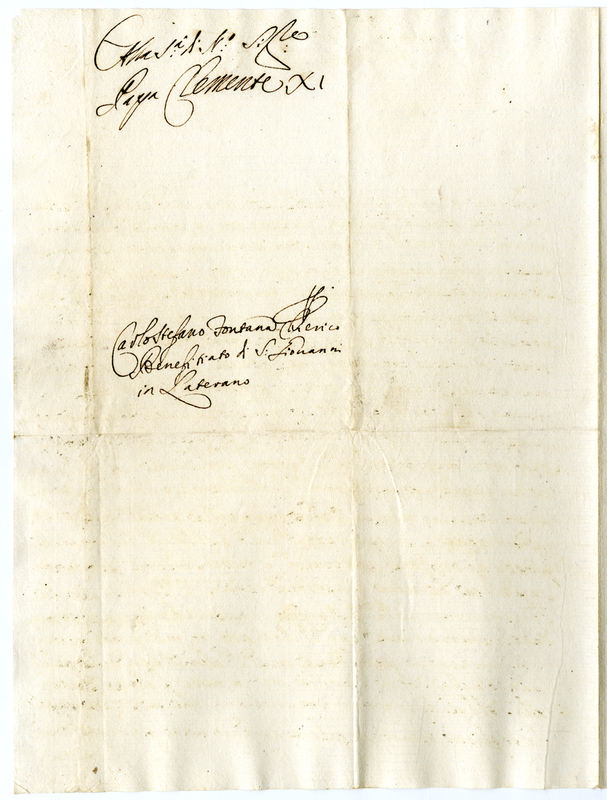 Alla S.tà di N.ro Sig.re
Papa Clemente XI
Carlo Stefano Fontana Chierico
Benefitiato di S. Giovanni
in Laterano